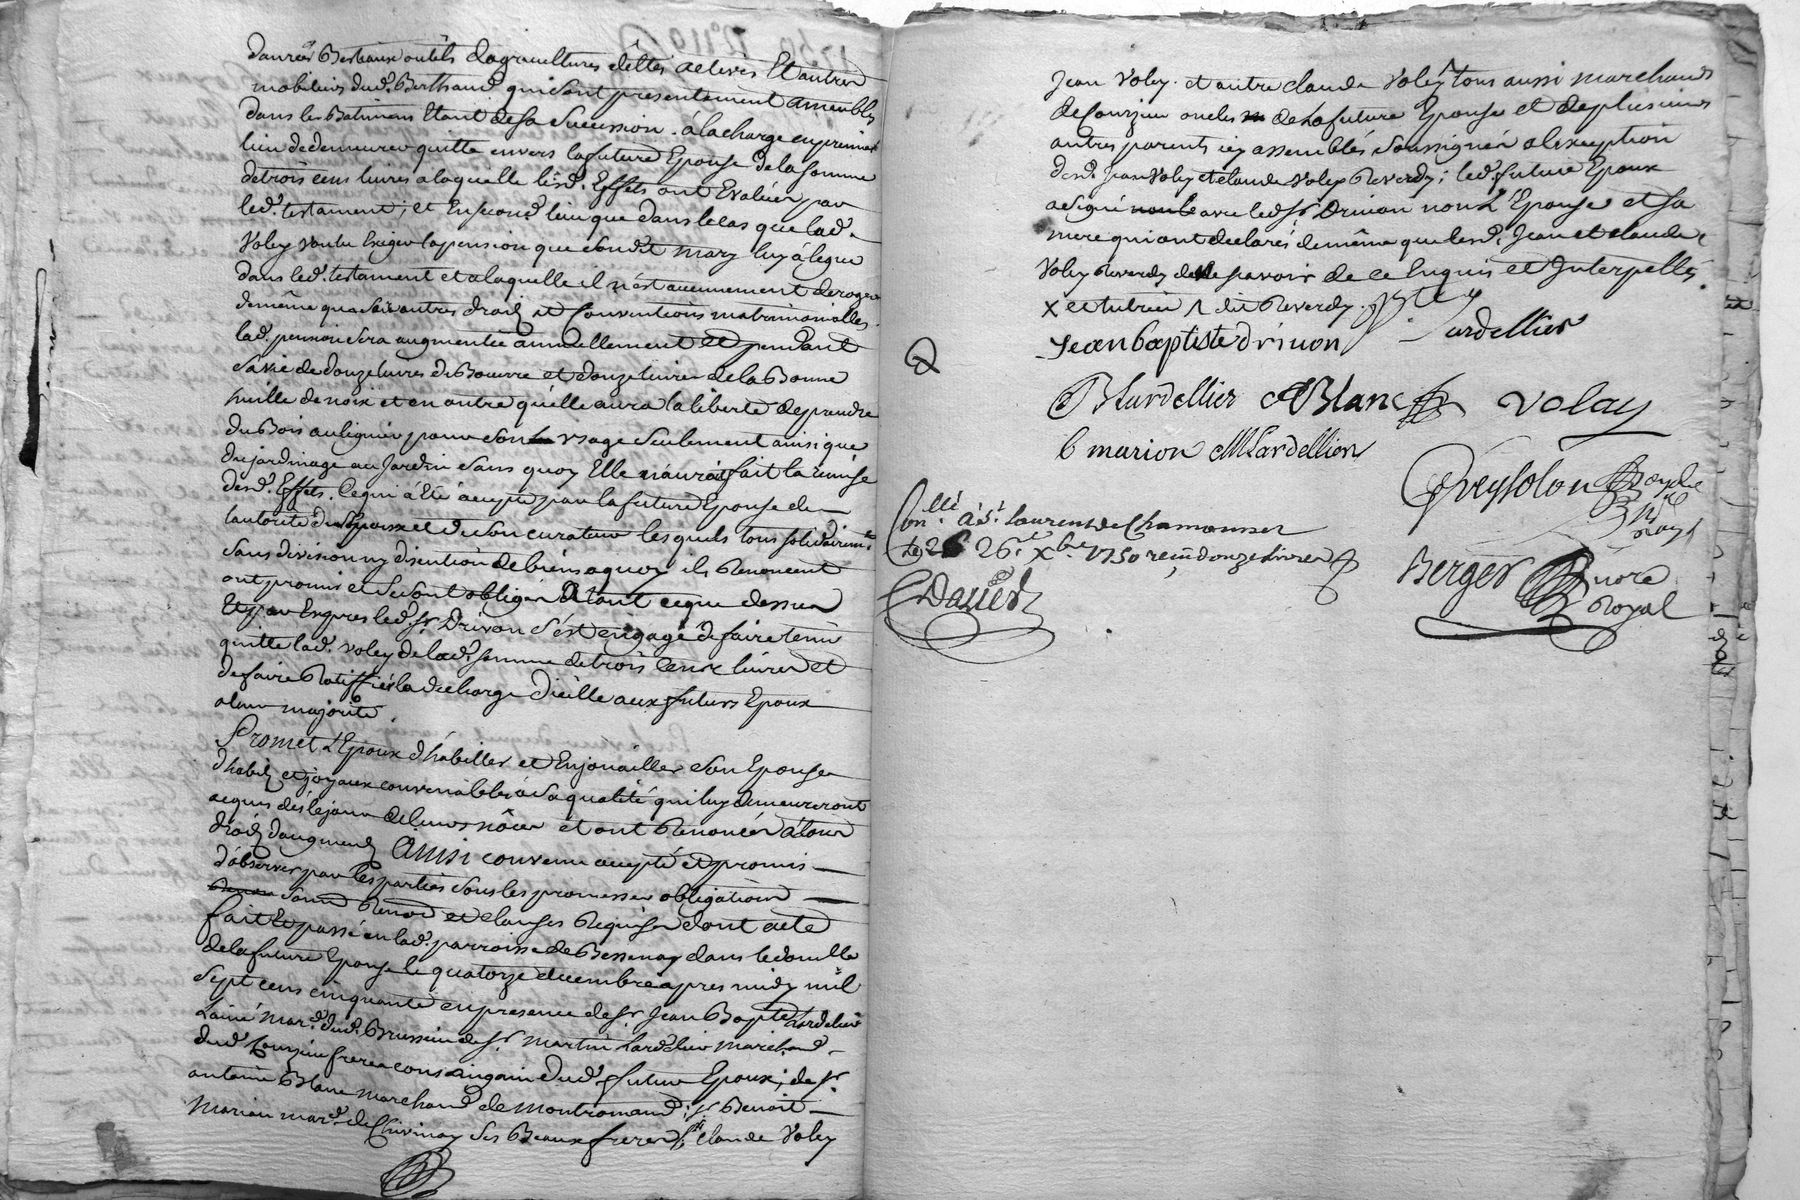 danrées Bestiaux outils d'agricultures dettes actives Et autres
mobiliers dud. Berthaud qui sont presentement ameublés
dans les Batimens Etant de sa succession. à la charge en premier
lieu de demeurer quitte envers la future Epouse de la somme
de trois cens livres a laquelle lesd. Effets ont Evalués par
led. testament; et En second lieu que dans le cas que lad.
Voley voulu Exiger la pension que sond. mary luy à legué
dans led. testament et a laquelle il n'est aucunement derogé
de même qua ses autres droits et Conventions matrimonialles
lad. pension sera augmentée annuellement et pendant
sa vie de douze livres de Beurre et douze livres de la Bonne
huille de noix et en outre qu'elle aura la liberté de prendre
du Bois au ligner pour son usage seulement ainsi que
du jardinage au Jardin sans quoy Elle n'auroit fait la remise
desd. Effets. Ce qui à Eté accepté par la future Epouse de
l'autorité du Epoux et de son curateur lesquels tous solidairemt.
sans division ny discution de biens a quoy ils Renoncent
ont promis et se sont obligés A tout ce que dessus
Et par Exprès led. Sr. Drivon s'est engagé de faire tenir
quitte lad. Voley de lad. somme de trois Cens livres et
de faire Ratiffier la decharge d'icelle aux futurs Epoux
a leur majorité.
Promet l'Epoux d'habiller et Enjouailler son Epouse
d'habits et joyaux convenables à sa qualité qui luy demeureront
acquis dés le jour de leurs nôces et ont Renoncés à tous
droits d'augment Ainsi convenu accepté et promis
d'observer par les parties sous les promesses obligations
Renon et clauses Requises dont acte
fait Et passé en lad. parroisse de Bessenay dans le domicille
de la future Epouse le quatorze decembre apres midy mil
sept cens cinquante en presence de Sr. Jean Bapte Lardelier
L'ainé Mard. dud. Brussieu de Sr. Martin Lardelier Marchand
dud. Courzieu freres consanguin dud. futur Epoux; de Sr.
antoine Blanc marchand de Montromand; Sr. Benoit
Marion mard. de Chivinay ses Beaux freres Claude Voley
Jean Voley. et autre claude Voley tous aussi marchands
de Courzieu oncles de la future Epouse et de plusieurs
autres parents icy assemblés soussignés a l'exeption
desd. Jean Voley et claude Voley Reverdy; led. futur Epoux
a signé avec led. Sr. Drivon non l'Epouse et sa
mere qui ont declarés de même que lesd. Jean et claude
Voley Reverdy de ne savoir de ce Enquis et Interpellés.
X et dit Reverdy.
Jean baptiste drivon Lardellier
B Lardellier A Blanc Volay
b marion M Lardellier
Peysolon
Conllé. à St. laurent de Chamousset
le 26 26e. Xbre. 1750 reçu douze livres
Berger nore
Royal